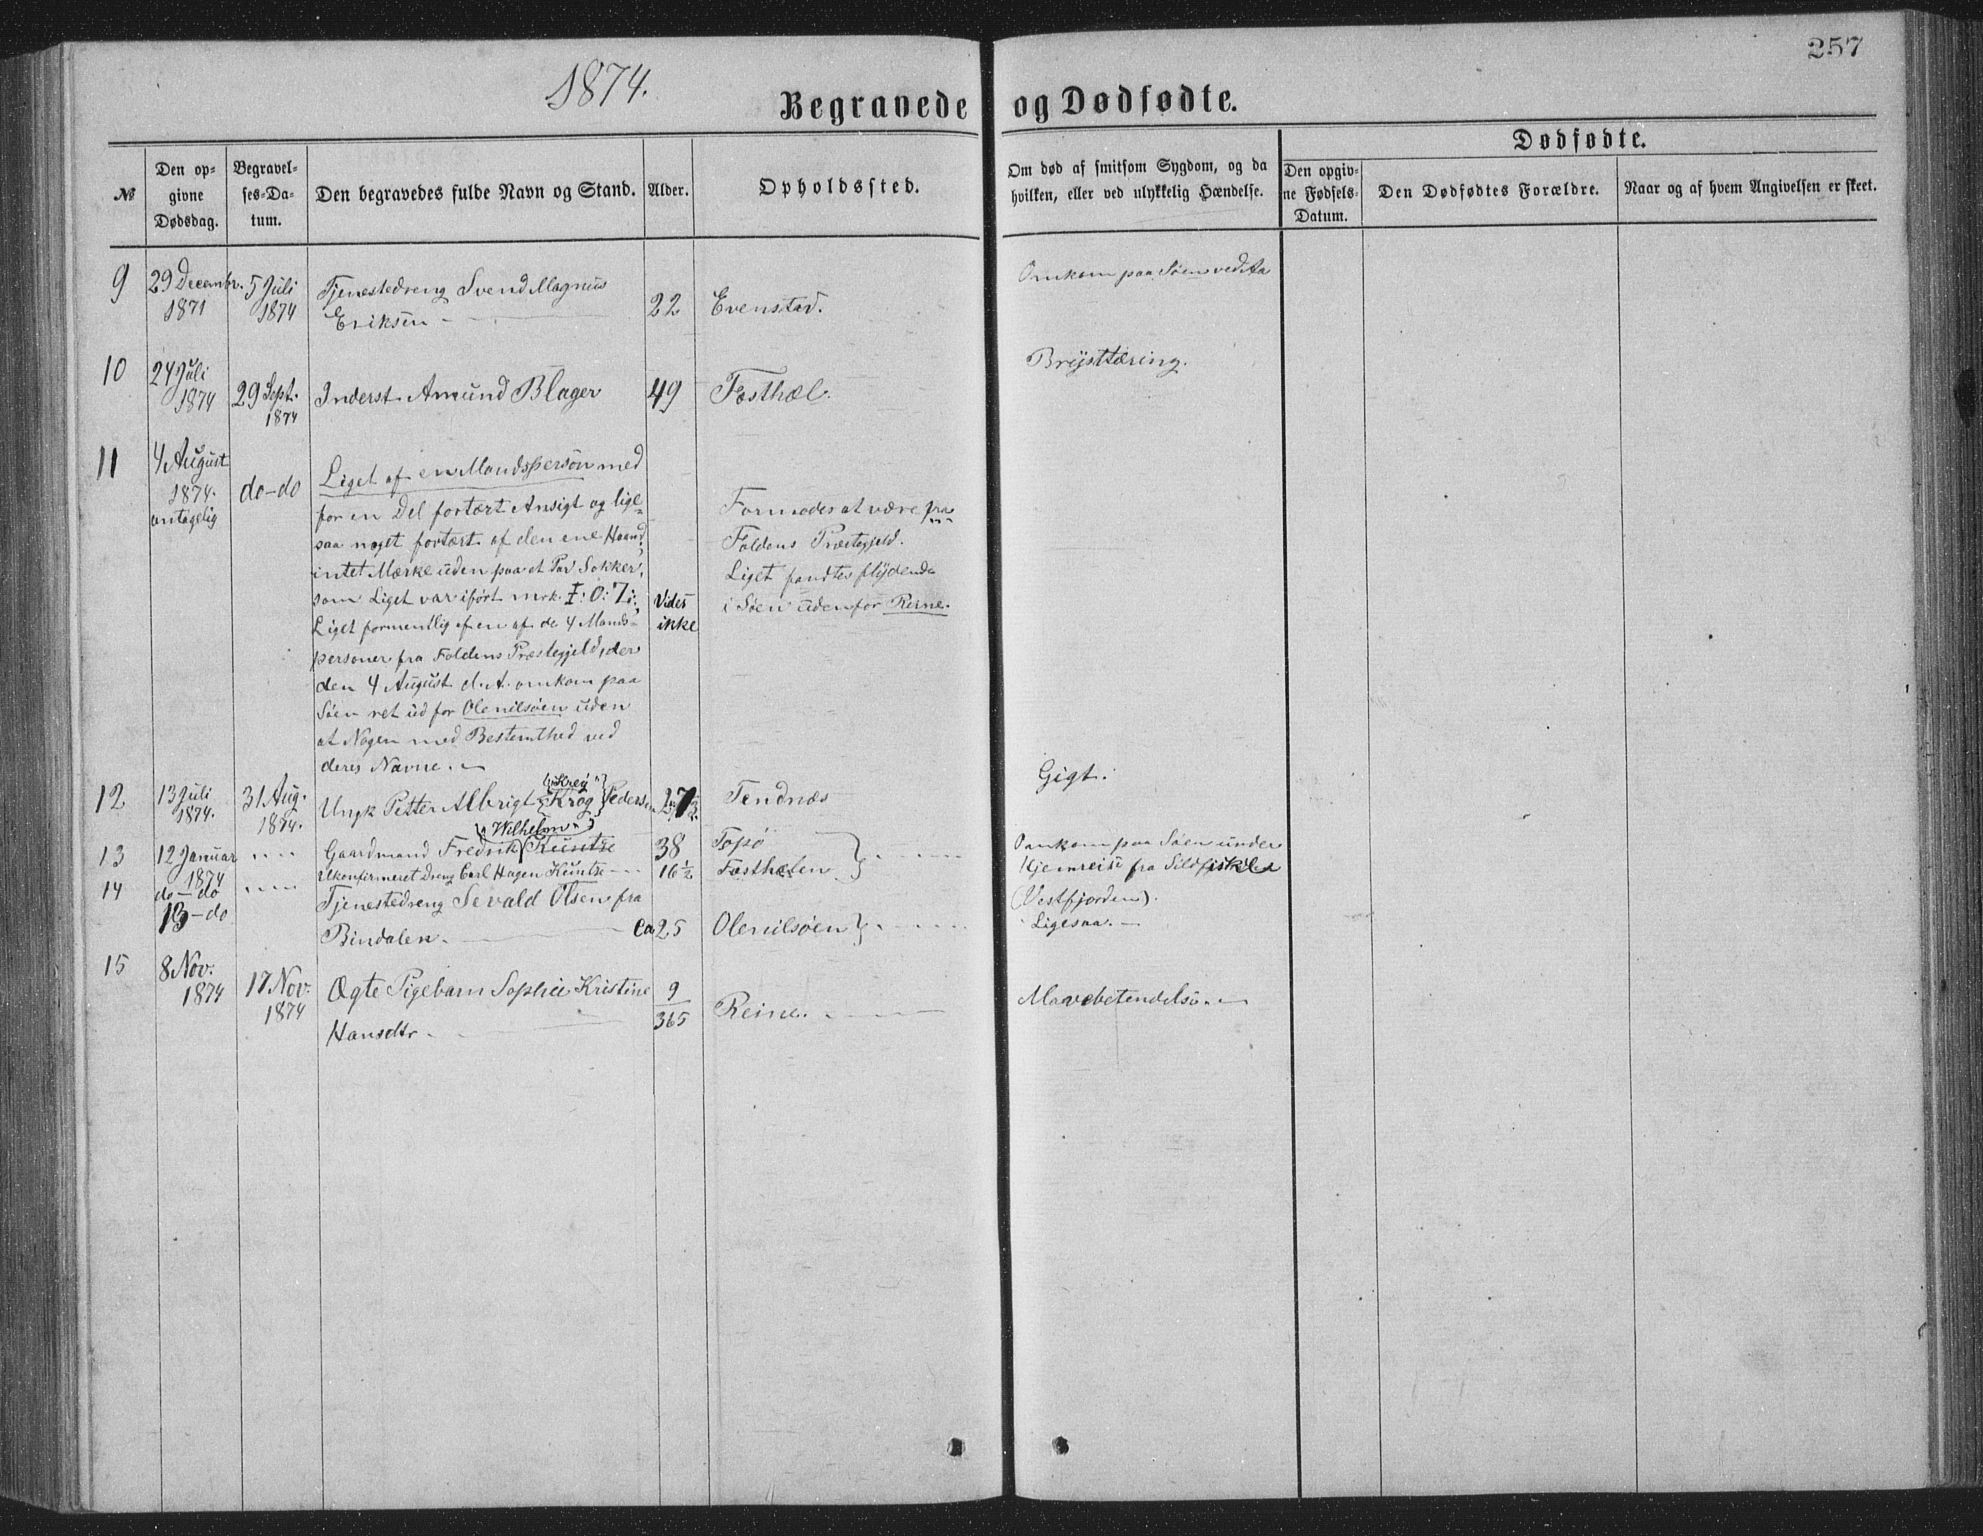 257
1874.
Begravede og Dødfødte.
Dødfødte.
№
Den op-
givne
Dødsdag.
Begravel-
ses-Da-
tum.
Den begravedes fulde Navn og Stand.
Alder.
Opholdssted.
Om død af smitsom Sygdom, og da
hvilken, eller ved ulykkelig Hændelse.
Den opgiv-
ne Fødsels-
Datum.
Den Dødfødtes Forældre.
Naar og af hvem Angivelsen er skeet.
9
29 Decembr.
1871
5 Juli
1874
Tjenestedreng Svend Magnus
Eriksen
22
Evenstad.
Omkom paa Søen ved Aa
10
24 Juli
1874
29 Sept.
1874
Inderst Amund Blager
49
Festhæl.
Brysttæring.
11
4 August
1874.
antagelig
do-do
Liget af en Mandsperson med
for en Del fortært Ansigt og lige-
saa noget fortært af den ene Haand,
intet Mærke uden paa et Par Sokker,
som Liget var iført mrk. I: O: 7:,
Liget formentlig af en af de 4 Mands-
personer fra Foldens Præstegjeld, der
den 4 August d. A. omkom paa
Søen ret ud for Olenilsøen uden
at Nogen med Bestemthed ved
deres Navne.
Vides
ikke
Formodes at være fra
Foldens Præstegjeld.
Liget fandtes flydende
i Søen udenfor Reine.
12
13 Juli
1874.
31 Aug.
1874.
Ungk Petter Albrigt Krog Pedersen
"Krey"
Tendnæs
Gigt.
13
12 Januar
1874
Gaardmand Fredrik Kuntse
"Wilhelm"
38
Topø
Omkom paa Søen under
14
do-do
Ukonfirmeret Dreng Carl Hagen Kuntse
16½
Festhælen
Hjemreise fra Sildfisket
(Vestfjorden).
13-do
Tjenestedreng Sevald Olsen fra
Bindalen.
ca 25
Olenilsøen
Ligesaa.
15
8 Nov.
1874
17 Nov.
1874
Ægte Pigebarn Sophie Kristine
Hansdtr
9
365
Reine.
Mavebetendelse.